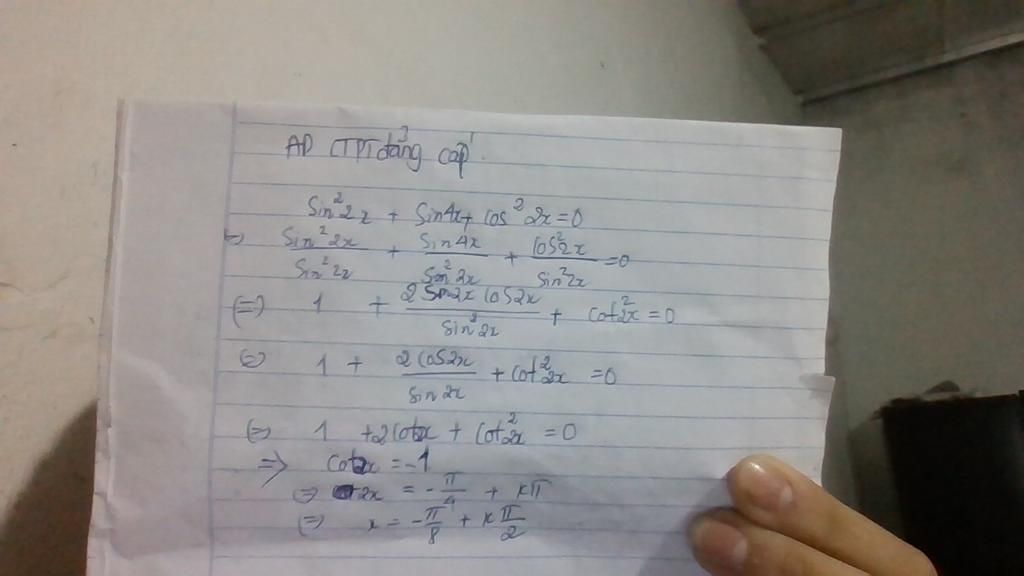 AD CTPT đẳng cấp
Sin²2x + Sin4x + Cos²2x = 0
⇔ Sin²2x/Sin²2x + Sin4x/Sin²2x + Cos²2x/Sin²2x = 0
⇔ 1 + 2Sin2x Cos2x/Sin²2x + Cot²2x = 0
⇔ 1 + 2Cos2x/Sin2x + Cot²2x = 0
⇔ 1 + 2Cot2x + Cot²2x = 0
=> Cot2x = -1
⇔ 2x = -π/4 + kπ
⇔ x = -π/8 + k π/2